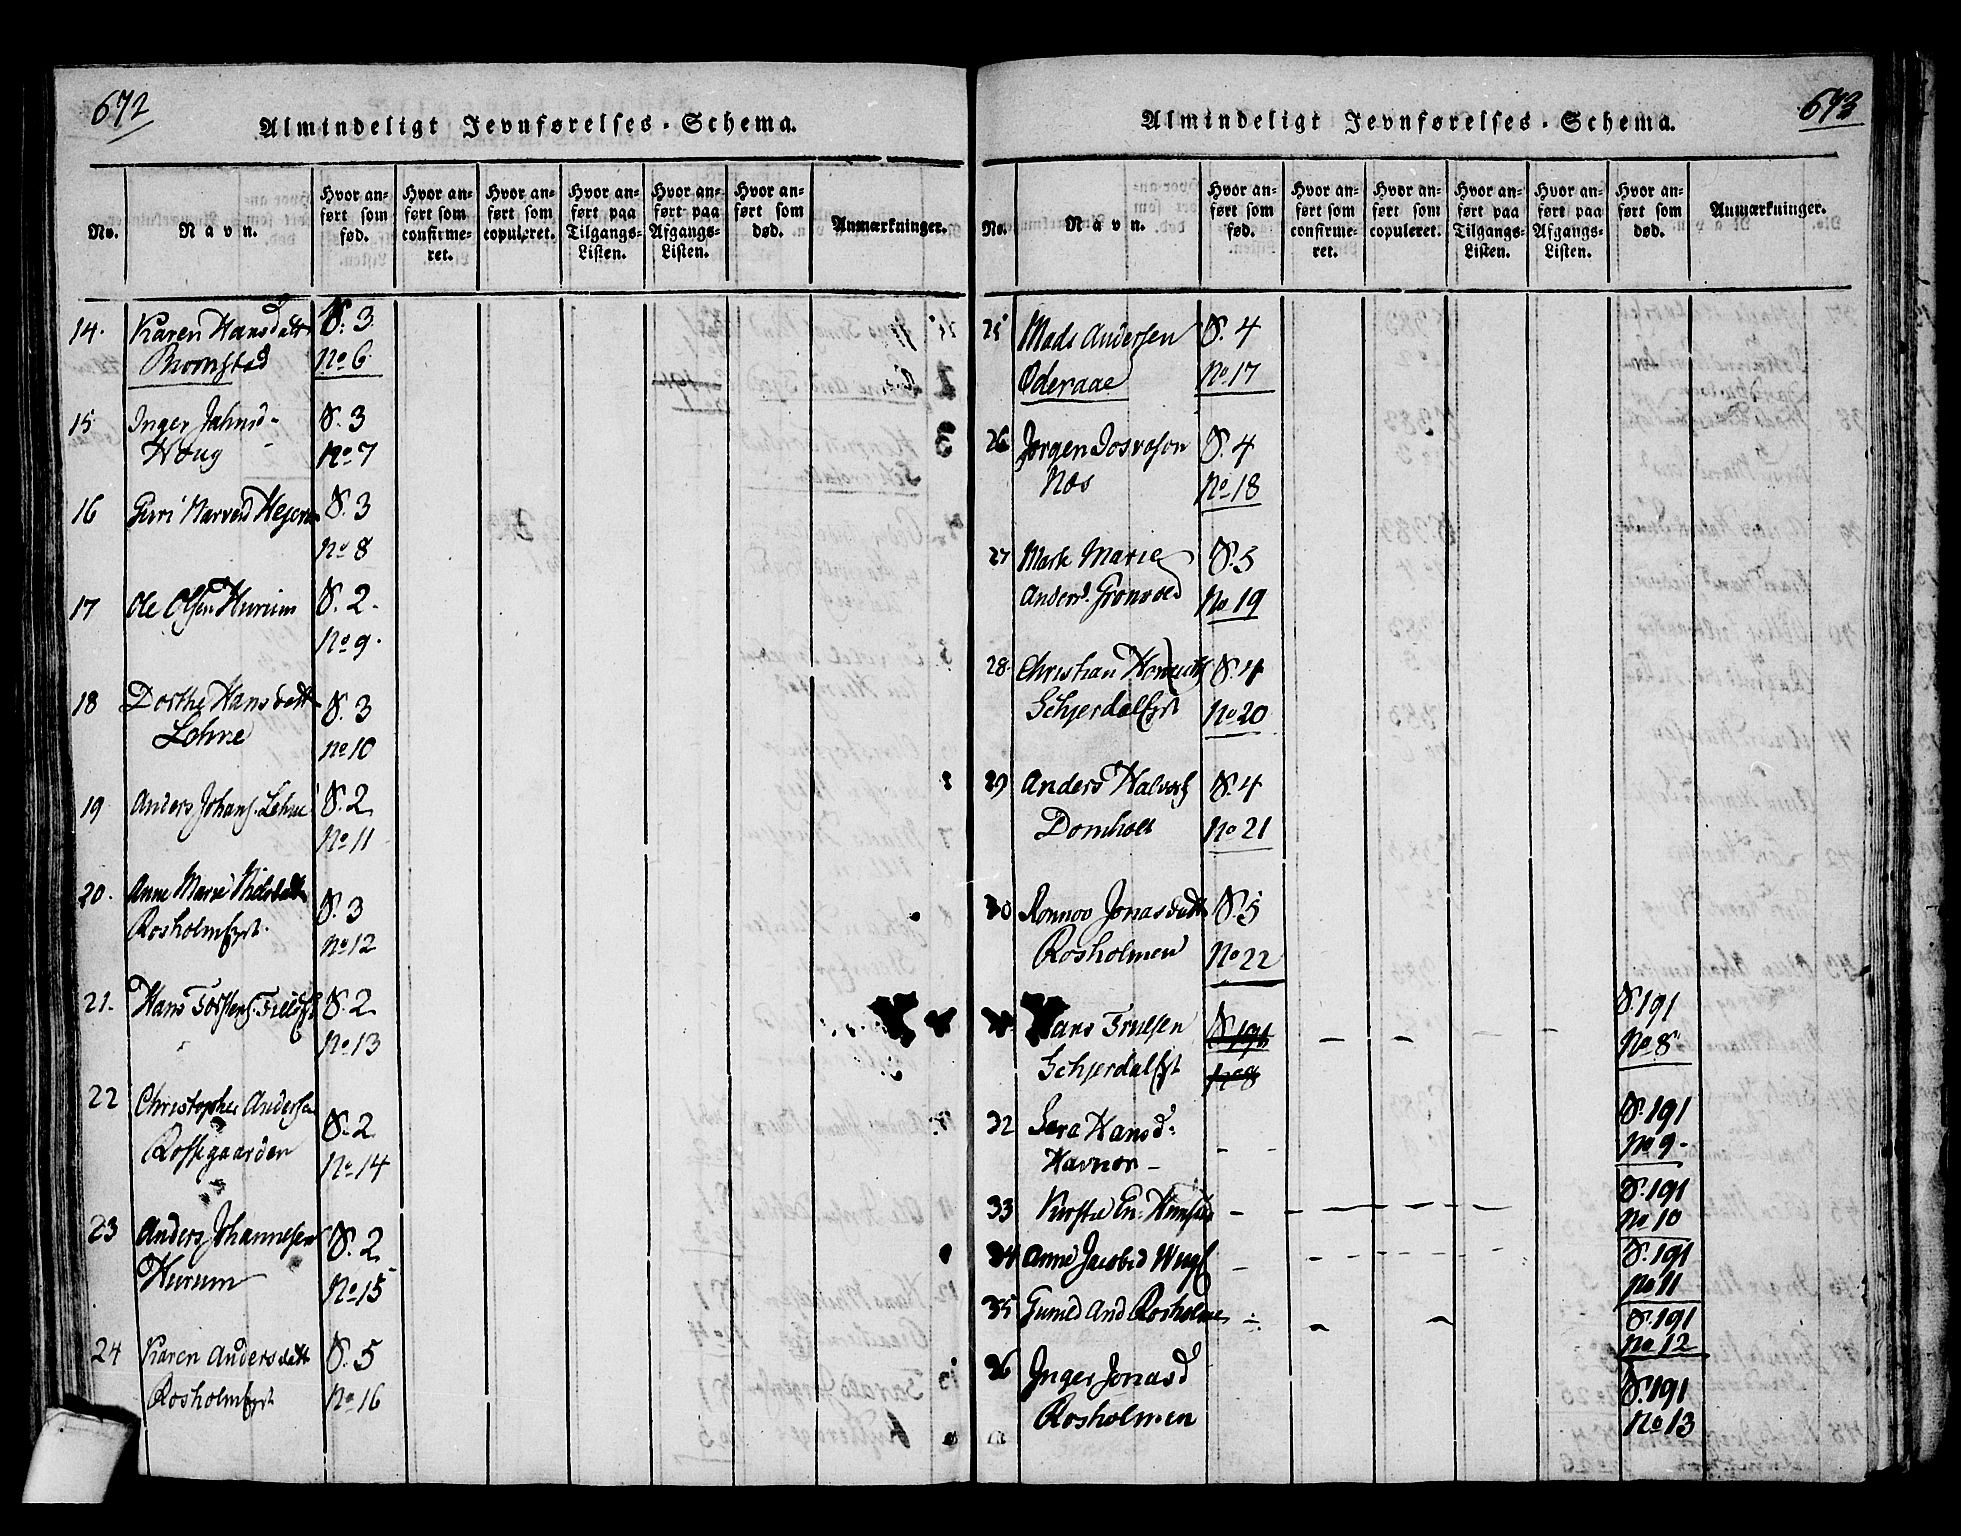 672
Almindeligt Jevnførelses-Schema.
No. Navn. Hvor anført som fød. Hvor anført som confirmeret. Hvor anført som copuleret. Hvor anført paa Tilgangs-Listen. Hvor anført paa Afgangs-Listen. Hvor anført som død. Anmærkninger.
14. Karen Hansdatt S. 3
No 6
15 Inger S. 3
Houg No 7
16 Guri S. 3
No 8
17 Ole Olsen Hurum S. 2.
No 9.
18 Dorthe Hansdatt S. 3
Lohne No 10
19 Anders Johans. Lohne S. 2
No 11
20. Anne Marie Nielsdatt S. 3
Rosholm No 12
21. Hans S. 2
No 13
22 Christopher Andersen S. 2
Rossegaarden No 14
23 Anders Johannesen S. 2
Hurum No 15
24 Karen Andersdatt S. 5
Rosholm No 16
673
Almindeligt Jevnførelses-Schema.
No. Navn. Hvor anført som fød. Hvor anført som confirmeret. Hvor anført som copuleret. Hvor anført paa Tilgangs-Listen. Hvor anført paa Afgangs-Listen. Hvor anført som død. Anmærkninger.
25 Mads Andersen S. 4
Oderaae No 17
26 Jørgen S. 4
Næs No 18
27 Marte Marie S. 5
Andersd. Grønvold No 19
28. Christian S. 4
No 20
29 Anders Halvors S. 4
Domholt No 21
30 Rønnov Jonasdatt S. 5
Rosholmen No 22
Hans Truelsen S. 191 S. 191
No 8 No 8
32 Sara Hansd: - - S. 191
Havnør - No 9-
33 - - - - - - S. 191
No 10
34 Anne Jacobsd - - - - - S. 191
No 11
35 And Rosholme - - - S. 191
No 12
36 Inger Jonasd S. 191
Rosholmen No 13